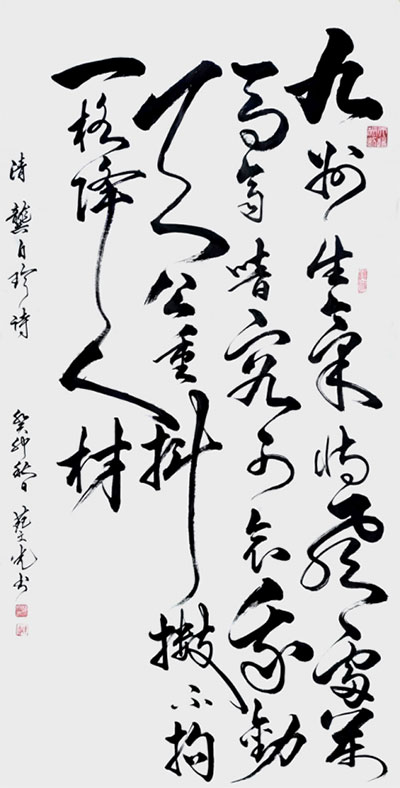 九州生氣恃風雷萬
馬齊喑究可哀我勸
天公重抖擻不拘
一格降人材
清 龔自珍詩 癸卯秋日 范文光书